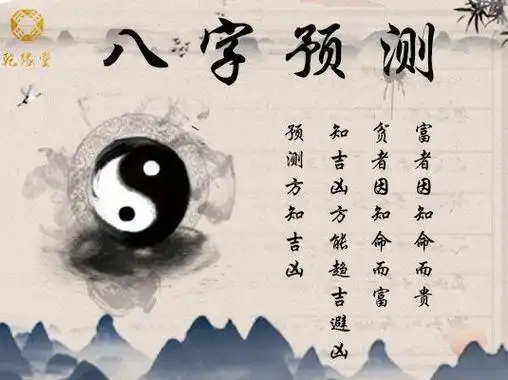 乾缘堂
八字预测
富者因知命而贵
贫者因知命而富
知吉凶方能趋吉避凶
预测方知吉凶